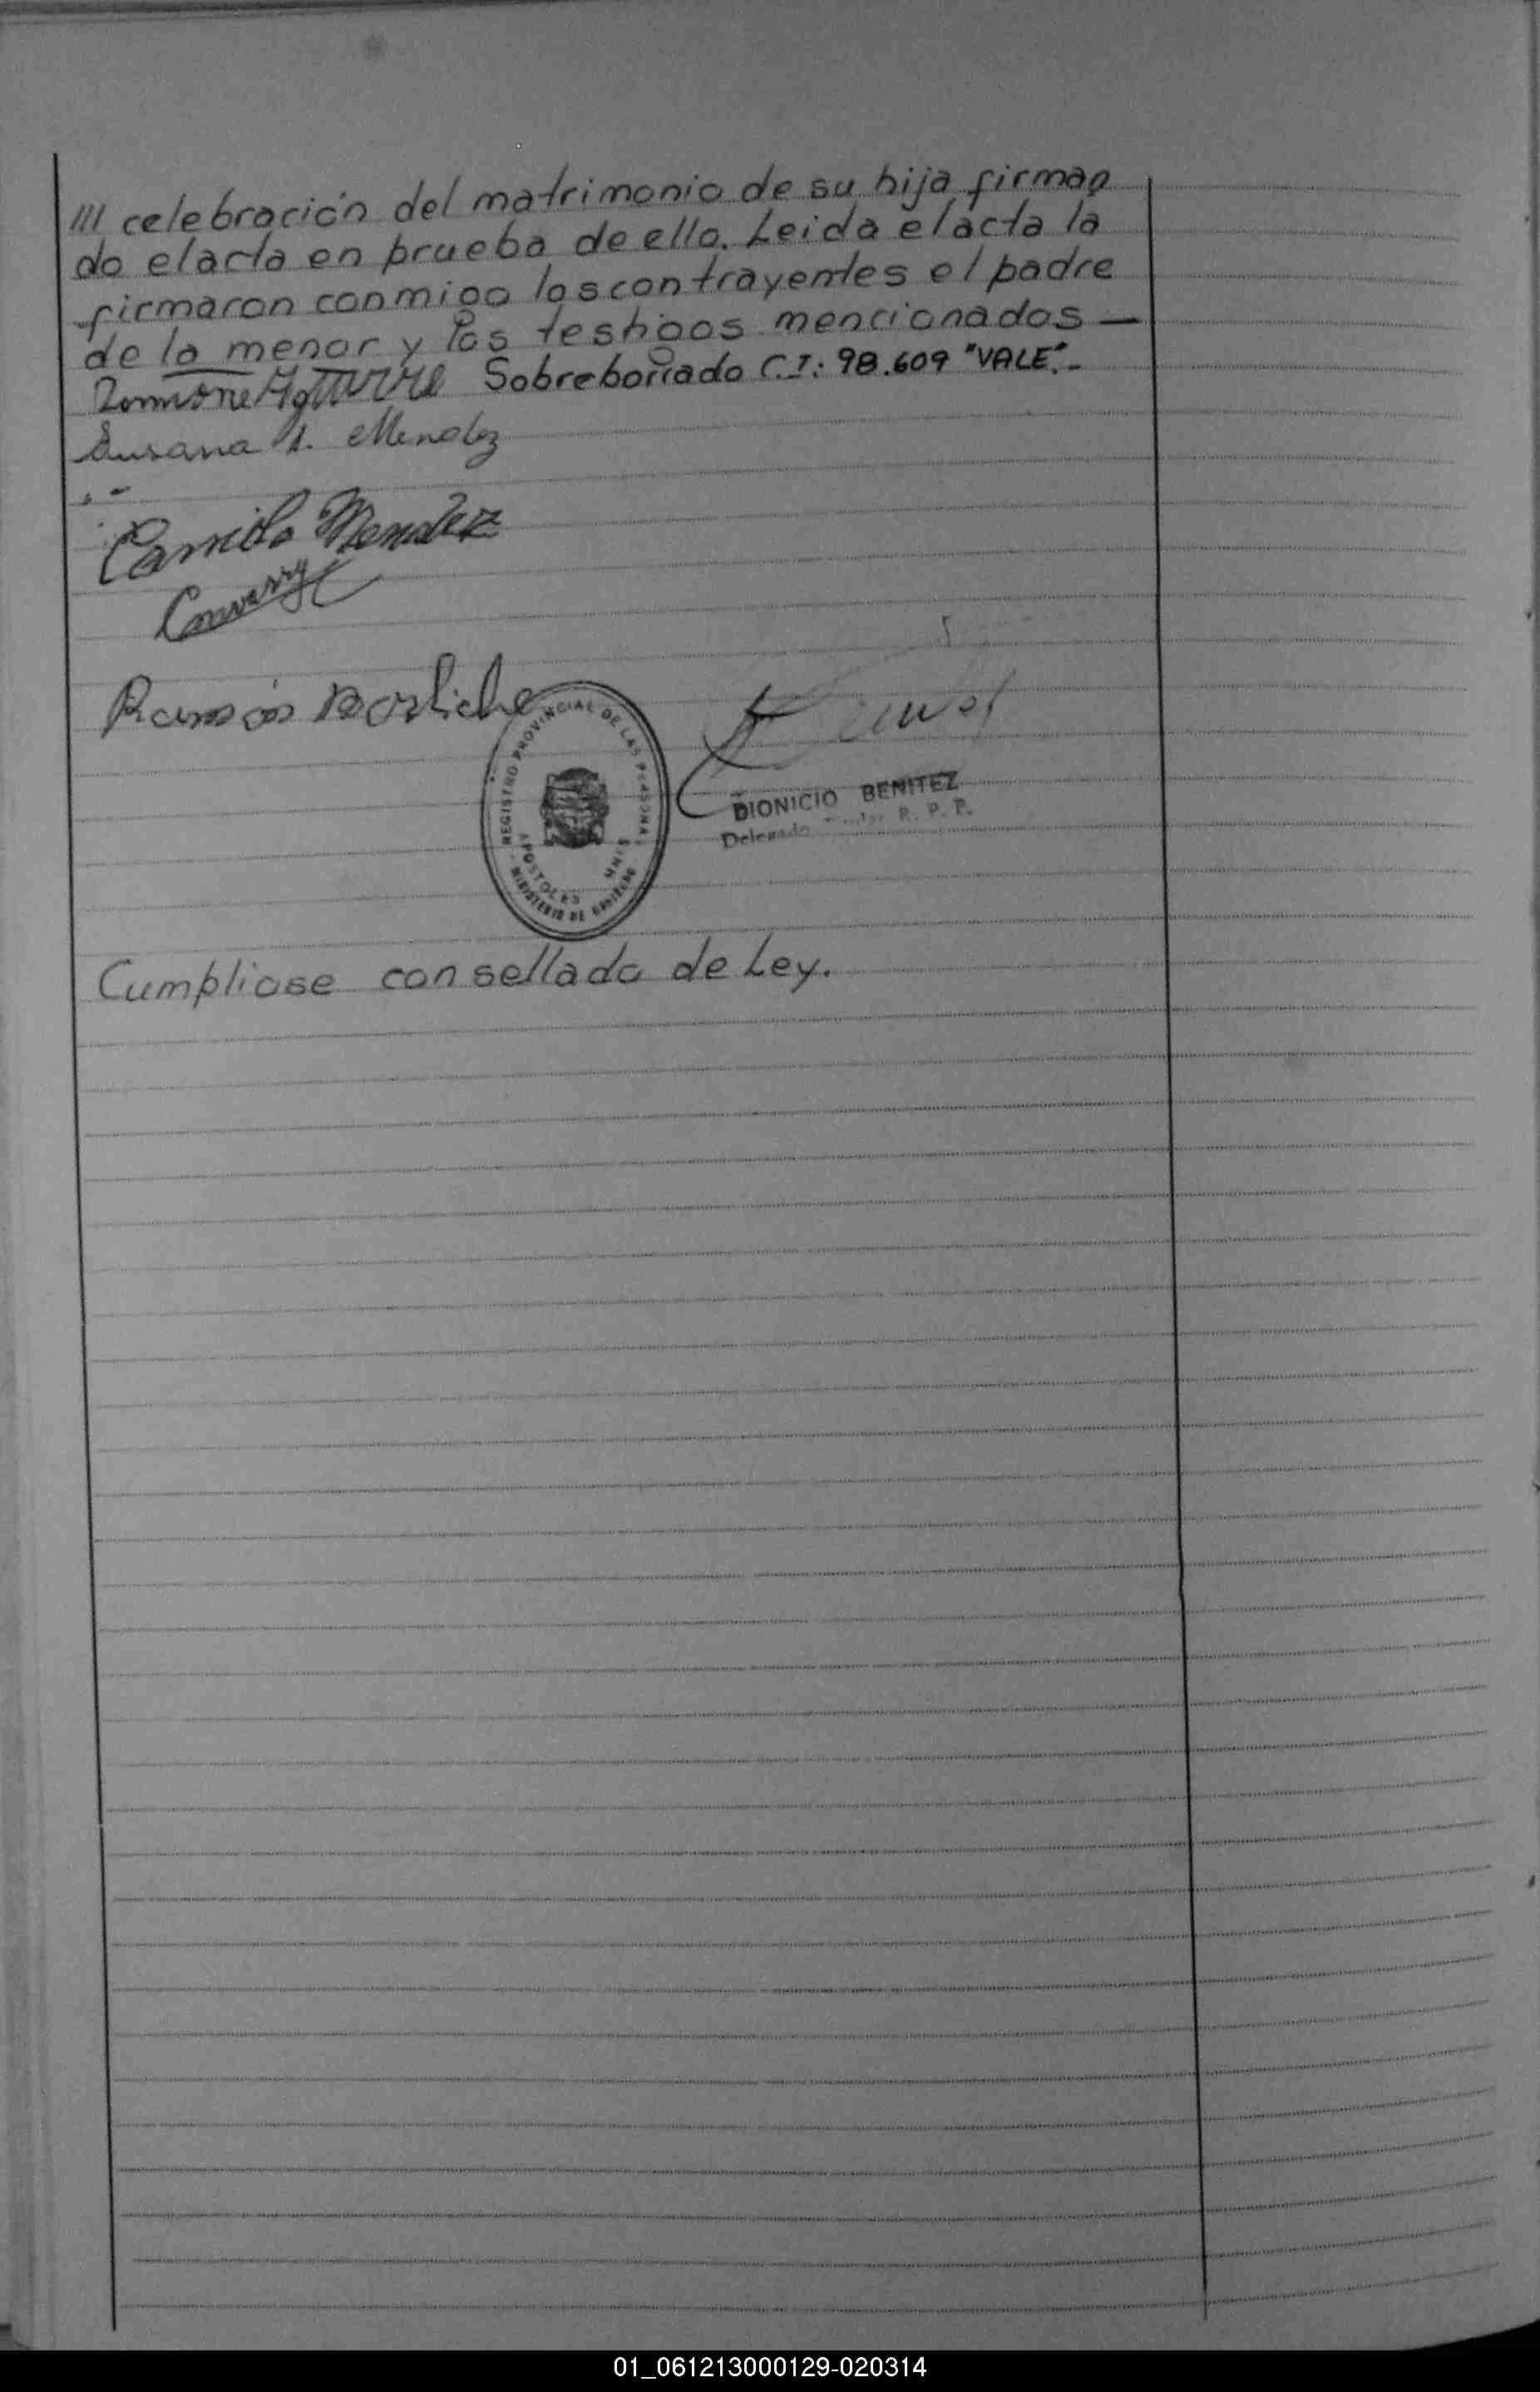 /// celebración del matrimonio de su hija firman
do el acta en prueba de ello. Leida el acta la
firmaron conmigo los contrayentes el padre
de la menor y los testigos mencionados —
Aguirre Sobreborrado C.I: 98.609 "VALE".-
Susana A. Mendez
Camilo Mendez
Ramón
REGISTRO PROVINCIAL DE LAS PERSONAS
APOSTOLES MNES
MINISTERIO DE GOBIERNO
DIONICIO BENITEZ
Delegado Titular R. P. P.
Cumpliose con sellado de Ley.
01_061213000129-020314